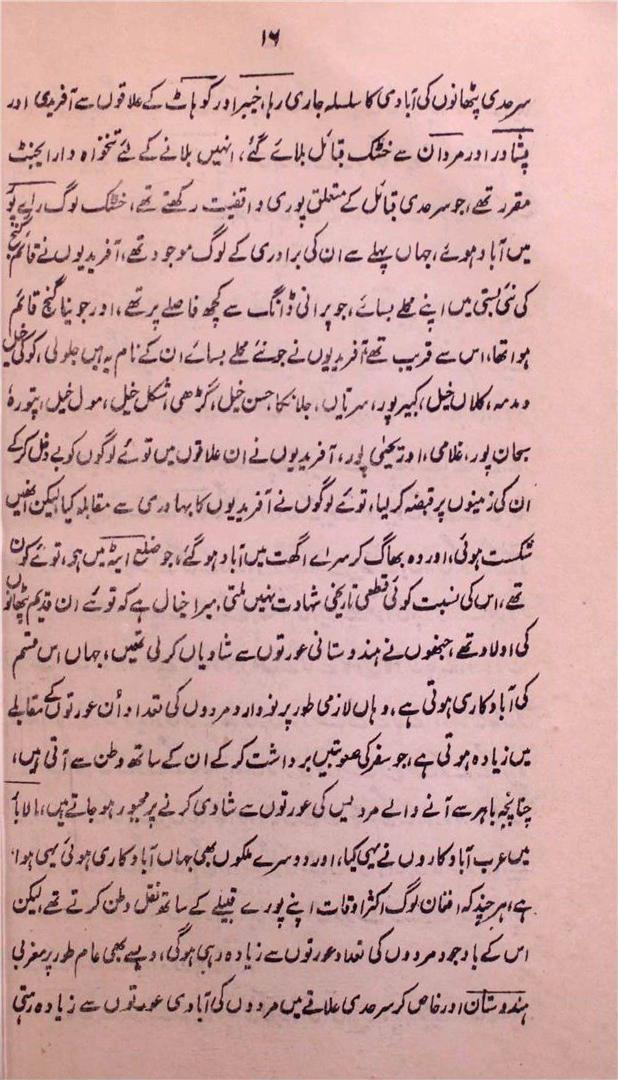 ۱۶
سرحدی پٹھانوں کی آبادی کا سلسلہ جاری رہا، خیبر اور کوہاٹ کے علاقوں سے آفریدی اور
پشاور اور مردان سے خٹک قبائل بلائے گئے، انہیں بلانے کے لئے تنخواہ دار ایجنٹ
مقرر تھے، جو سرحدی قبائل کے متعلق پوری واقفیت رکھتے تھے، خٹک لوگ
میں آباد ہوئے، جہاں پہلے سے ان کی برادری کے لوگ موجود تھے، آفریدیوں نے قائم گنج
کی نئی بستی میں اپنے محلے بسائے، جو پرانی ڈانگ سے کچھ فاصلے پر تھے، اور جو نیا گنج قائم
ہوا تھا، اس سے قریب تھے آفریدیوں نے جو نئے محلے بسائے ان کے نام یہ ہیں جلولی، کوکی خیل
و دمہ، کلاں خیل، کبیر پور، سرتیاں، جلا نکا، حسن خیل، گڑھی اشکل خیل، مول خیل، پتورہ
سبحان پور، غلامی، اور یحییٰ پور، آفریدیوں نے ان علاقوں میں توئے لوگوں کو بے دخل کر کے
ان کی زمینوں پر قبضہ کر لیا، توئے لوگوں نے آفریدیوں کا بہادری سے مقابلہ کیا لیکن انھیں
شکست ہوئی، اور وہ بھاگ کر سرائے اگھت میں آباد ہو گئے، جو ضلع ایٹہ میں ہے، توئے کون
تھے، اس کی نسبت کوئی قطعی تاریخی شہادت نہیں ملتی، میرا خیال ہے کہ توئے ان قدیم پٹھانوں
کی اولاد تھے، جنھوں نے ہندوستانی عورتوں سے شادیاں کر لی تھیں، جہاں اس قسم
کی آبادکاری ہوتی ہے، وہاں لازمی طور پر نووارد مردوں کی تعداد اُن عورتوں کے مقابلے
میں زیادہ ہوتی ہے، جو سفر کی صعوبتیں برداشت کر کے ان کے ساتھ وطن سے آتی ہیں،
چنانچہ باہر سے آنے والے مرد دیس کی عورتوں سے شادی کرنے پر مجبور ہو جاتے ہیں، مالابار
میں عرب آبادکاروں نے یہی کیا، اور دوسرے ملکوں بھی جہاں آبادکاری ہوئی یہی ہوا
ہے، ہر چند کہ افغان لوگ اکثر اوقات اپنے پورے قبیلے کے ساتھ نقل وطن کرتے تھے، لیکن
اس کے باوجود مردوں کی تعداد عورتوں سے زیادہ رہی ہوگی، ویسے بھی عام طور پر مغربی
ہندوستان اور خاص کر سرحدی علاقے میں مردوں کی آبادی عورتوں سے زیادہ رہتی